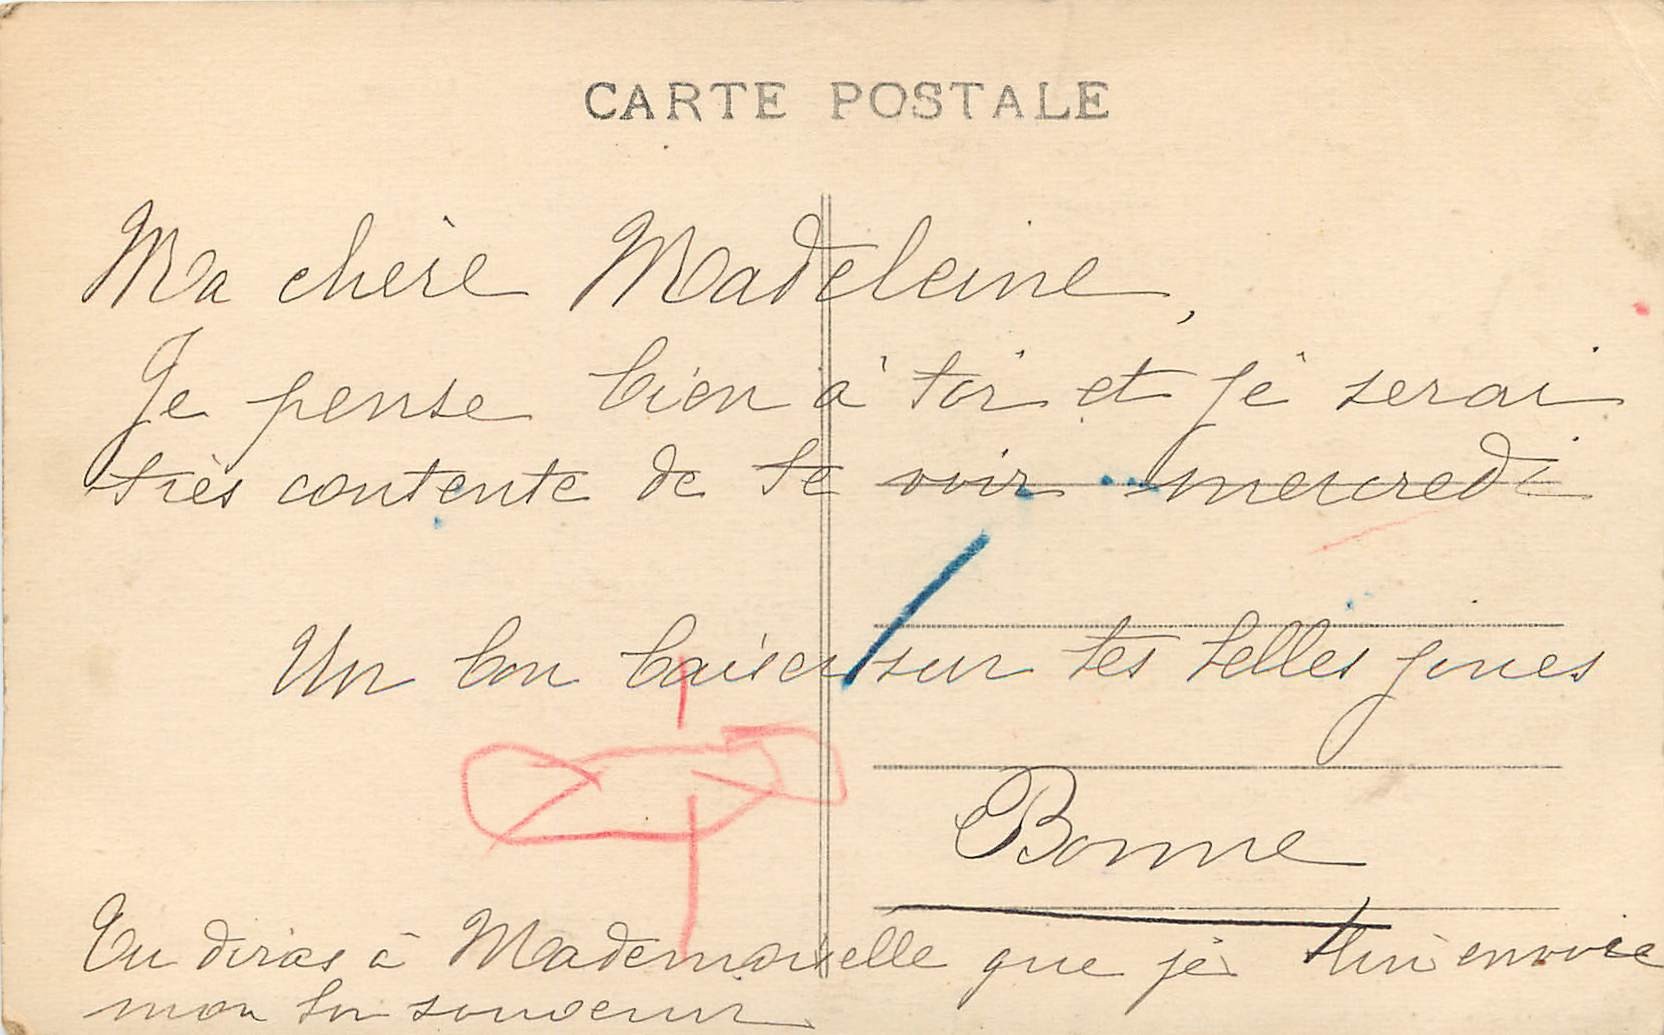 CARTE POSTALE
Ma chère Madeleine,
Je pense bien à toi et je serai
très contente de te voir mercredi
Un bon baiser sur tes belles joues
Bonne
Tu diras à Mademoiselle que je lui envoie
mon bon souvenir